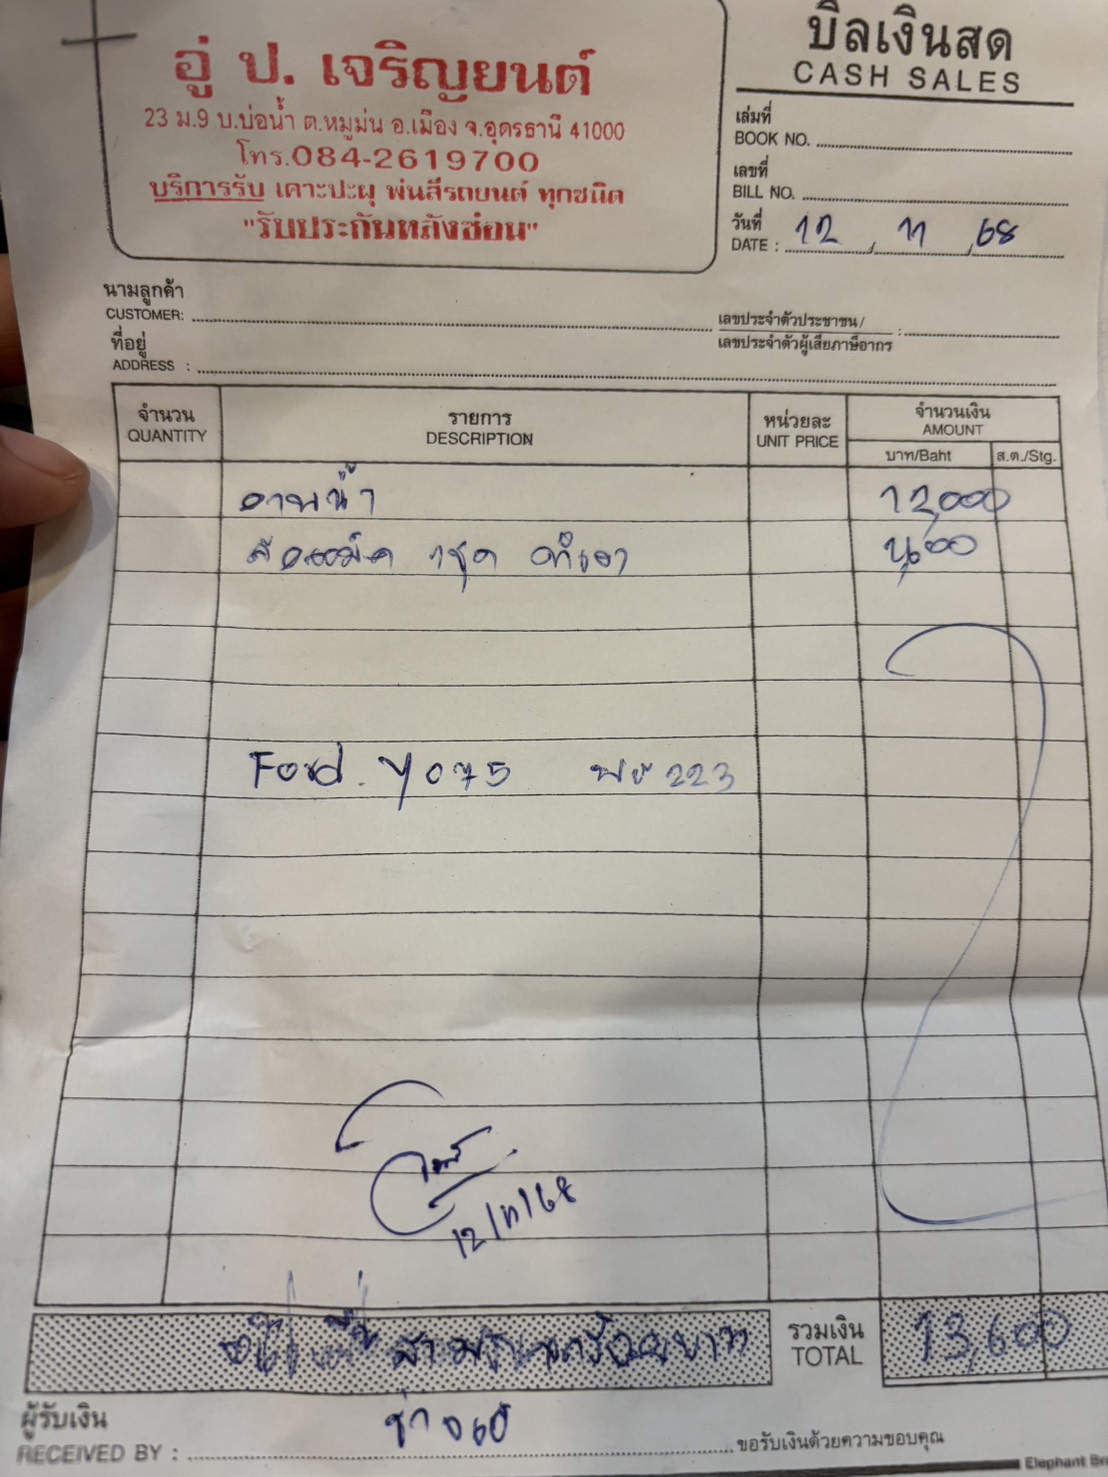 อู่ ป. เจริญยนต์
23 ม.9 บ.บ่อน้ำ ต.หมูม่น อ.เมือง จ.อุดรธานี 41000
โทร.084-2619700
บริการรับ เคาะปะผุ พ่นสีรถยนต์ ทุกชนิด
"รับประกันหลังซ่อม"
บิลเงินสด
CASH SALES
เล่มที่
BOOK NO.
เลขที่
BILL NO.
วันที่
DATE : 12 11 68
นามลูกค้า
CUSTOMER:
เลขประจำตัวประชาชน/
เลขประจำตัวผู้เสียภาษีอากร :
ที่อยู่
ADDRESS :
จำนวน รายการ หน่วยละ จำนวนเงิน
QUANTITY DESCRIPTION UNIT PRICE AMOUNT
บาท/Baht ส.ต./Stg.
12,000
1 ชุด
Ford 223
12/11/68
สามพันหกร้อยบาท
รวมเงิน
TOTAL 13,600
ผู้รับเงิน
RECEIVED BY : ช่าง
ขอรับเงินด้วยความขอบคุณ
Elephant